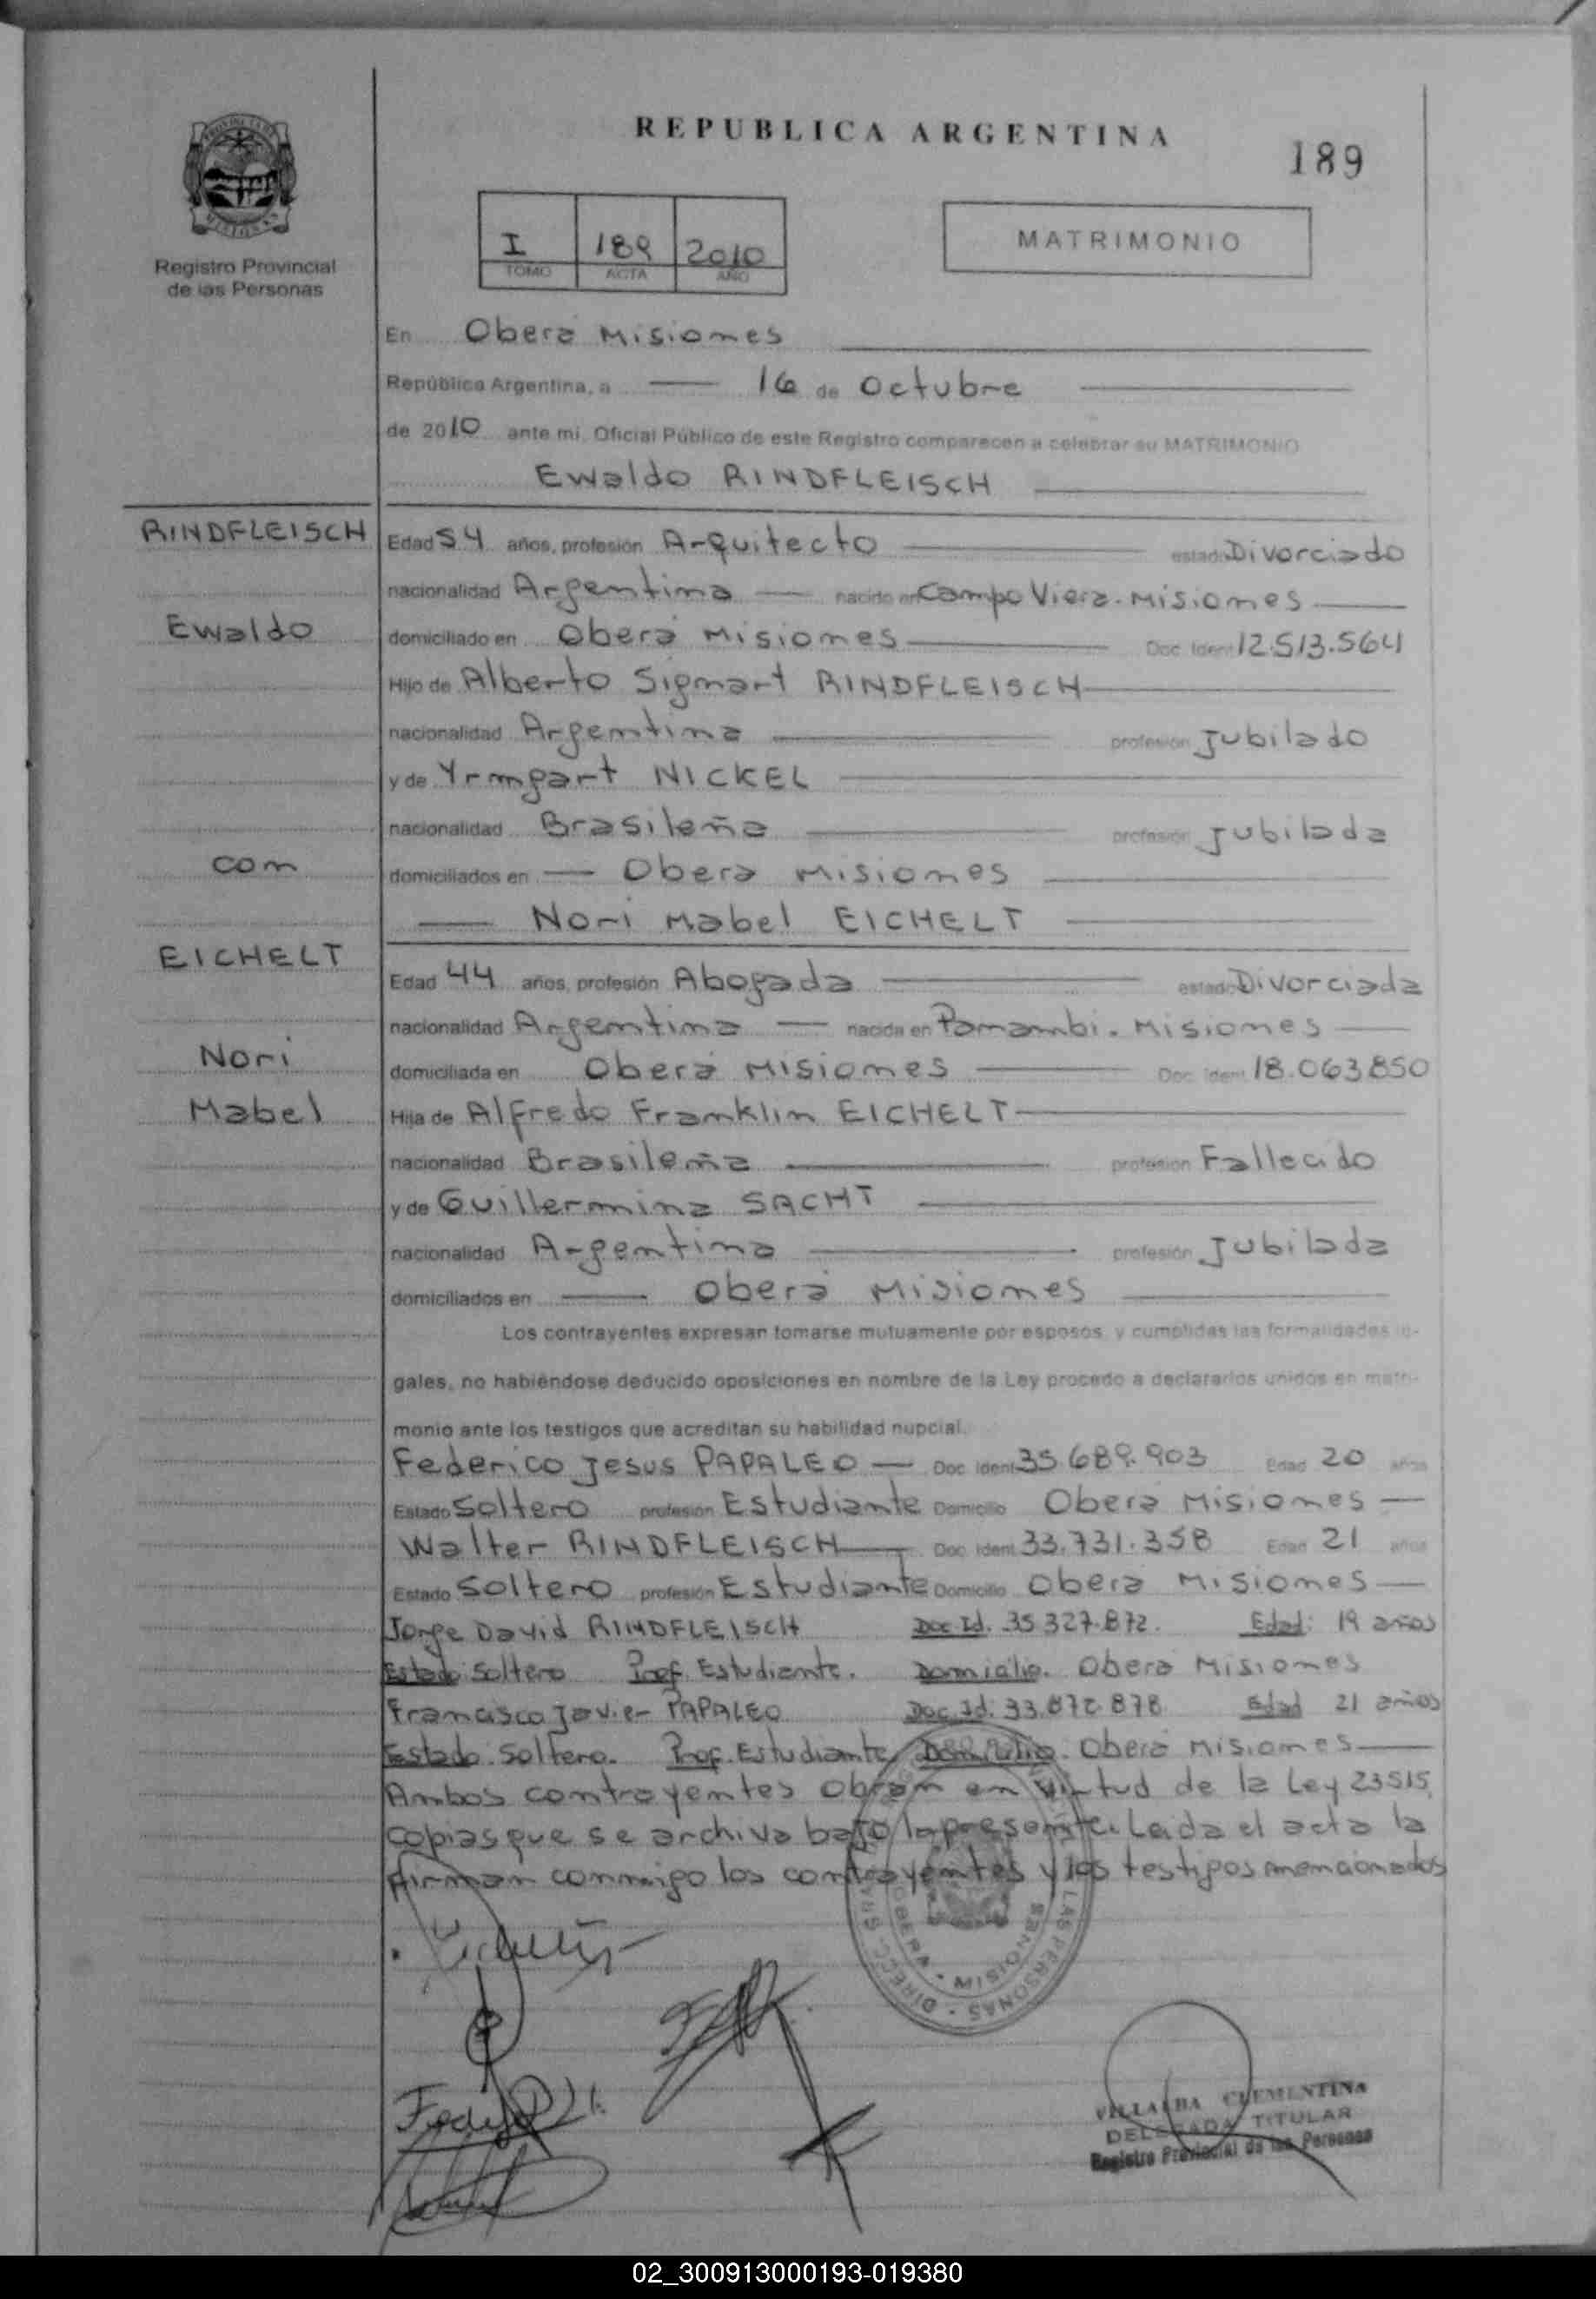 REPUBLICA ARGENTINA
189
PROVINCIA DE
MISIONES
Registro Provincial
de las Personas
I 189 2010
TOMO ACTA AÑO
MATRIMONIO
En Oberá Misiones
República Argentina, a 16 de Octubre
de 2010 ante mi, Oficial Público de este Registro comparecen a celebrar su MATRIMONIO
Ewaldo RINDFLEISCH
RINDFLEISCH
Ewaldo
con
EICHELT
Nori
Mabel
Edad 54 años, profesión Arquitecto estado Divorciado
nacionalidad Argentina nacido en Campo Viera. Misiones
domiciliado en Oberá Misiones Doc. Ident 12.513.564
Hijo de Alberto Sigmart RINDFLEISCH
nacionalidad Argentina profesión Jubilado
y de Yrmgart NICKEL
nacionalidad Brasileña profesión Jubilada
domiciliados en Oberá Misiones
Nori Mabel EICHELT
Edad 44 años, profesión Abogada estado Divorciada
nacionalidad Argentina nacida en Panambi. Misiones
domiciliada en Oberá Misiones Doc. Ident 18.063.850
Hija de Alfredo Franklin EICHELT
nacionalidad Brasileña profesión Fallecido
y de Guillermina SACHT
nacionalidad Argentina profesión Jubilada
domiciliados en Oberá Misiones
Los contrayentes expresan tomarse mutuamente por esposos, y cumplidas las formalidades le-
gales, no habiéndose deducido oposiciones en nombre de la Ley procedo a declararlos unidos en matri-
monio ante los testigos que acreditan su habilidad nupcial.
Federico Jesus PAPALEO Doc. Ident 35.689.903 Edad 20 años
Estado Soltero profesión Estudiante Domicilio Oberá Misiones
Walter RINDFLEISCH Doc. Ident 33.731.358 Edad 21 años
Estado Soltero profesión Estudiante Domicilio Oberá Misiones
Jorge David RINDFLEISCH Doc. Id. 35.327.872. Edad: 19 años
Estado Soltero Prof. Estudiante. Domicilio. Oberá Misiones
Francisco Javier PAPALEO Doc. Id: Edad 21 años
Estado Soltero. Prof. Estudiante Domicilio. Oberá Misiones
Ambos contrayentes obran en virtud de la Ley 23515,
copias que se archiva bajo la presente. Leida el acta la
firman conmigo los contrayentes y los testigos mencionados
LAS PERSONAS - DIRECC.
OBERA - MISIONES
VILLALBA CLEMENTINA
DELEGADA TITULAR
Registro Provincial de las Personas
02_300913000193-019380